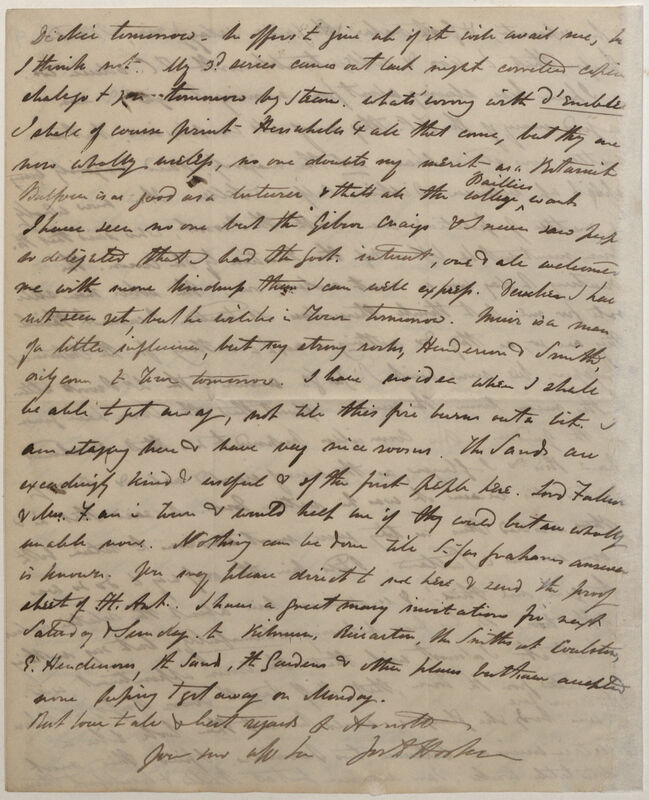 tomorrow - he offers to give up if it will avail me, but
I think not. My 3d. series came out last night corrected copies
shall go to you tomorrow by steam. what's wrong with d'Urville
I shall of course print Herschels & all that come, but they are
now wholly useless, no one doubts my merit as a Botanist
Balfour is as good as a lecturer & thats all the Baillies college want
I have seen no one but the Gibson Craigs & I never saw people
so delighted that I had the Govt. interest, one & all welcomed
me with more kindness than I can well express. I have
not seen yet, but he will be in Town tomorrow. Muir is a man
of little influence, but my strong rocks, Henderson & Smith,
only come to Town tomorrow. I have no idea when I shall
be able to get away, not till this fire burns out a bit. I
am staying here & have very nice rooms. The Sands are
exceedingly kind & useful & of the first people here. Lord
& Mrs. F. are in Town & would help me if they could but are wholly
unable now. Nothing can be done till Sir Jas Grahams answer
is known. you may please direct to me here & send the proof
sheet of Fl. Ant. I have a great many invitations for next
Saturday & Sunday to Riccarton, the Smiths at
E. Hendersons, Ld Sands, & other places but have accepted
none hoping to get away on Monday.
Best love to all & best regards to Arnott
your ever aff Son Jos D Hooker